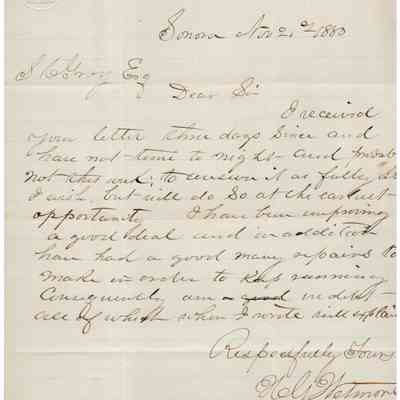 Sonora Nov 21st 1883
S C Gray Esq
Dear Sir
I received
your letter three days since and
have not time to night and probab
not this week to answer it as fully as
I wish, but will do so at the earliest
opportunity I have been improving
a good deal and in addition
have had a good many repairs to
make in order to keep running
Consequently am a good in debt
all of which when I wrote will explain
Respectfully Yours
Wetmore